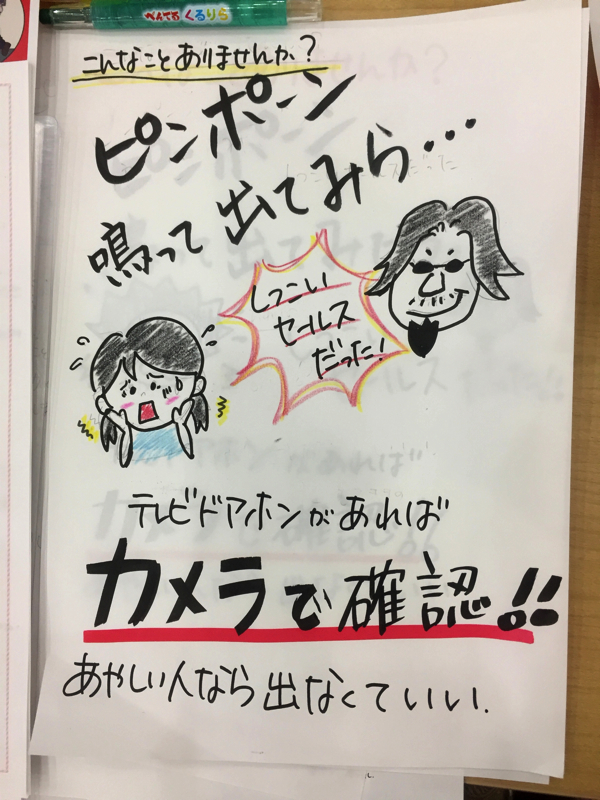 ぺんてる くるりら
こんなことありませんか?
ピンポーン
鳴って出てみら・・・
しつこい
セールス
だった!
テレビドアホンがあれば
カメラで確認!!
あやしい人なら出なくていい.